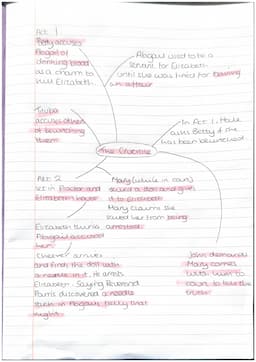 Act 1
Betty accuses
Abigail of
drinking blood
as a charm to
kill Elizabeth.
Abigail used to be a
servant for Elizabeth
until she was fired for having
an affair
Tituba
accuses others
of bewitching
them
In Act 1, Hale
asks Betty if she
has been bewitched
The Crucible
Act 2
set in Proctor and
Elizabeth's house
Mary (while in court)
sewed a doll and gives
it to Elizabeth
Mary claims she
saved her from being
arrested
Elizabeth thinks
Abigail accused
her.
Cheever arrives
and finds the doll with
a needle in it. He arrests
Elizabeth - saying Reverend
Parris discovered a needle
stuck in Abigail's belly that
night
John demands
Mary comes
with him to
court to tell the
truth